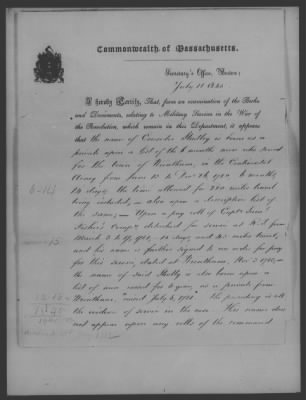 Commonwealth of Massachusetts.
Secretary's Office, Boston;
July 11
I hereby Certify, That, from an examination of the Books
and Documents, relating to Military Service in the War of
the Revolution, which remain in this Department, it appears
that the name of is borne as a
private upon a list of the 6 months men who served
for the town of Wrentham, in the Continental
Army from June to 1780, 6 months,
14 days, the time allowed for 220 miles travel
6-14
being included, is also upon a description list of
the same; — Upon a pay roll of Capt
Fisher's Compy detached for service at R.I. from
March
and his name is further signed to an order for pay
for this service, dated at Wrentham, Nov.
the name of said is also borne upon a
list of men raised for 3 years, as a private from
Wrentham, July 3, 1781. The preceding is all
the evidence of service in the case. His name does
not appear upon any rolls of the command